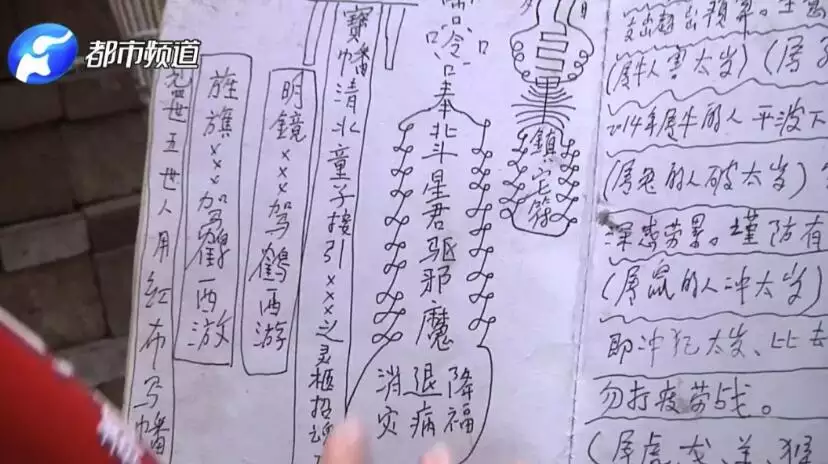 都市频道
世五世人用红布写幡
旌旗×××驾鹤西游
明鏡×××驾鹤西游
寶幡清北童子接引×××之灵柩招魂
奉北斗星君驱邪魔
降福
退病
消灾
鎮宅符
支出超出预算。
(属牛人害太岁)(属
2014年属牛的人平波下
(属兔的人破太岁)
深感劳累。谨防有
(属鼠的人冲太岁)
即冲犯太岁、比去
勿打疲劳战。
(属虎、龙、羊、猴